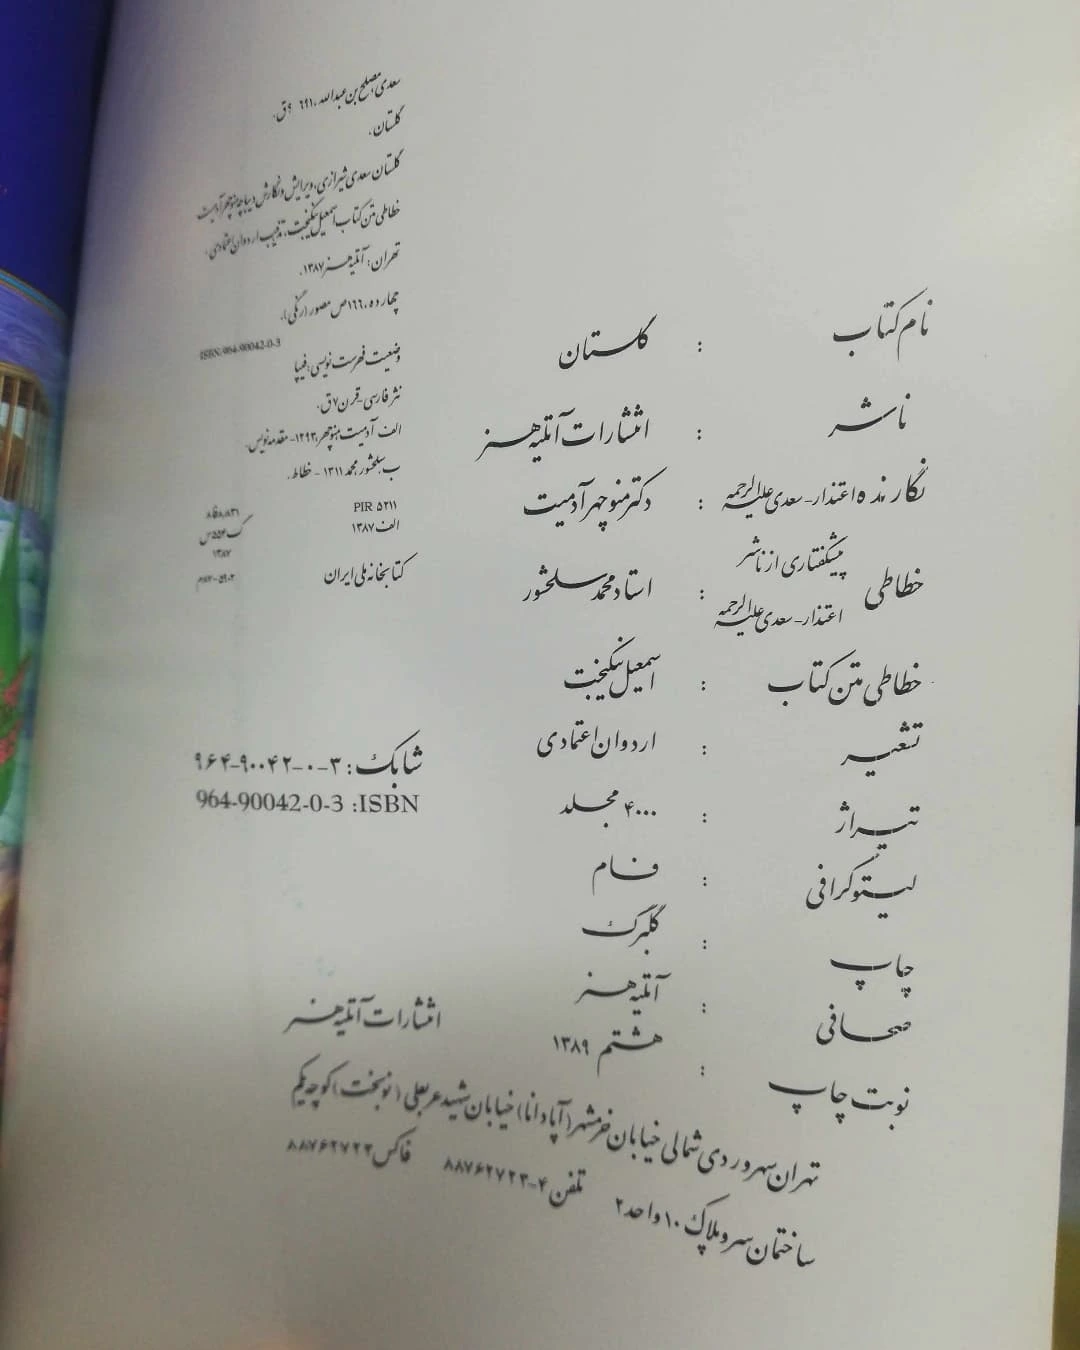 سعدی، مصلح بن عبدالله، ۶۹۱ ؟ق.
گلستان.
گلستان سعدی شیرازی، ویرایش و نگارش دیباچه منوچهر آدمیت
خطاطی متن کتاب اسمعیل نیکبخت، تذهیب اردوان اعتمادی.
تهران: آتلیه هنر ۱۳۸۷.
چهارده، ۱۶۶ص مصور (رنگی).
ISBN:964-90042-0-3
وضعیت فهرست نویسی: فیپا
نثر فارسی - قرن ۷ق.
الف. آدمیت، منوچهر، ۱۲۹۳- مقدمه نویس.
ب سلحشور، محمد ۱۳۱۱ - خطاط.
PIR ۵۲۱۱
الف ۱۳۸۷
۱۳۸۷
کتابخانه ملی ایران
شابک: ۳-۰-۹۰۰۴۲-۹۶۴
964-90042-0-3 :ISBN
نام کتاب : گلستان
ناشر : انتشارات آتلیه هنر
نگارنده اعتذار - سعدی علیه الرحمه : دکتر منوچهر آدمیت
خطاطی پیشگفتاری از ناشر
اعتذار - سعدی علیه الرحمه : استاد محمد سلحشور
خطاطی متن کتاب : اسمعیل نیکبخت
تشعیر : اردوان اعتمادی
تیراژ : ۴۰۰۰ مجلد
لیتوگرافی : فام
چاپ : گلبرگ
صحافی : آتلیه هنر
نوبت چاپ : هشتم ۱۳۸۹
انتشارات آتلیه هنر
تهران سهروردی شمالی خیابان خرمشهر (آپادانا) خیابان شهید عربعلی (نوبخت) کوچه یکم
ساختمان سرو پلاک ۱۰ واحد ۲ تلفن ۴-۸۸۷۶۲۷۲۳ فاکس ۸۸۷۶۲۷۲۲